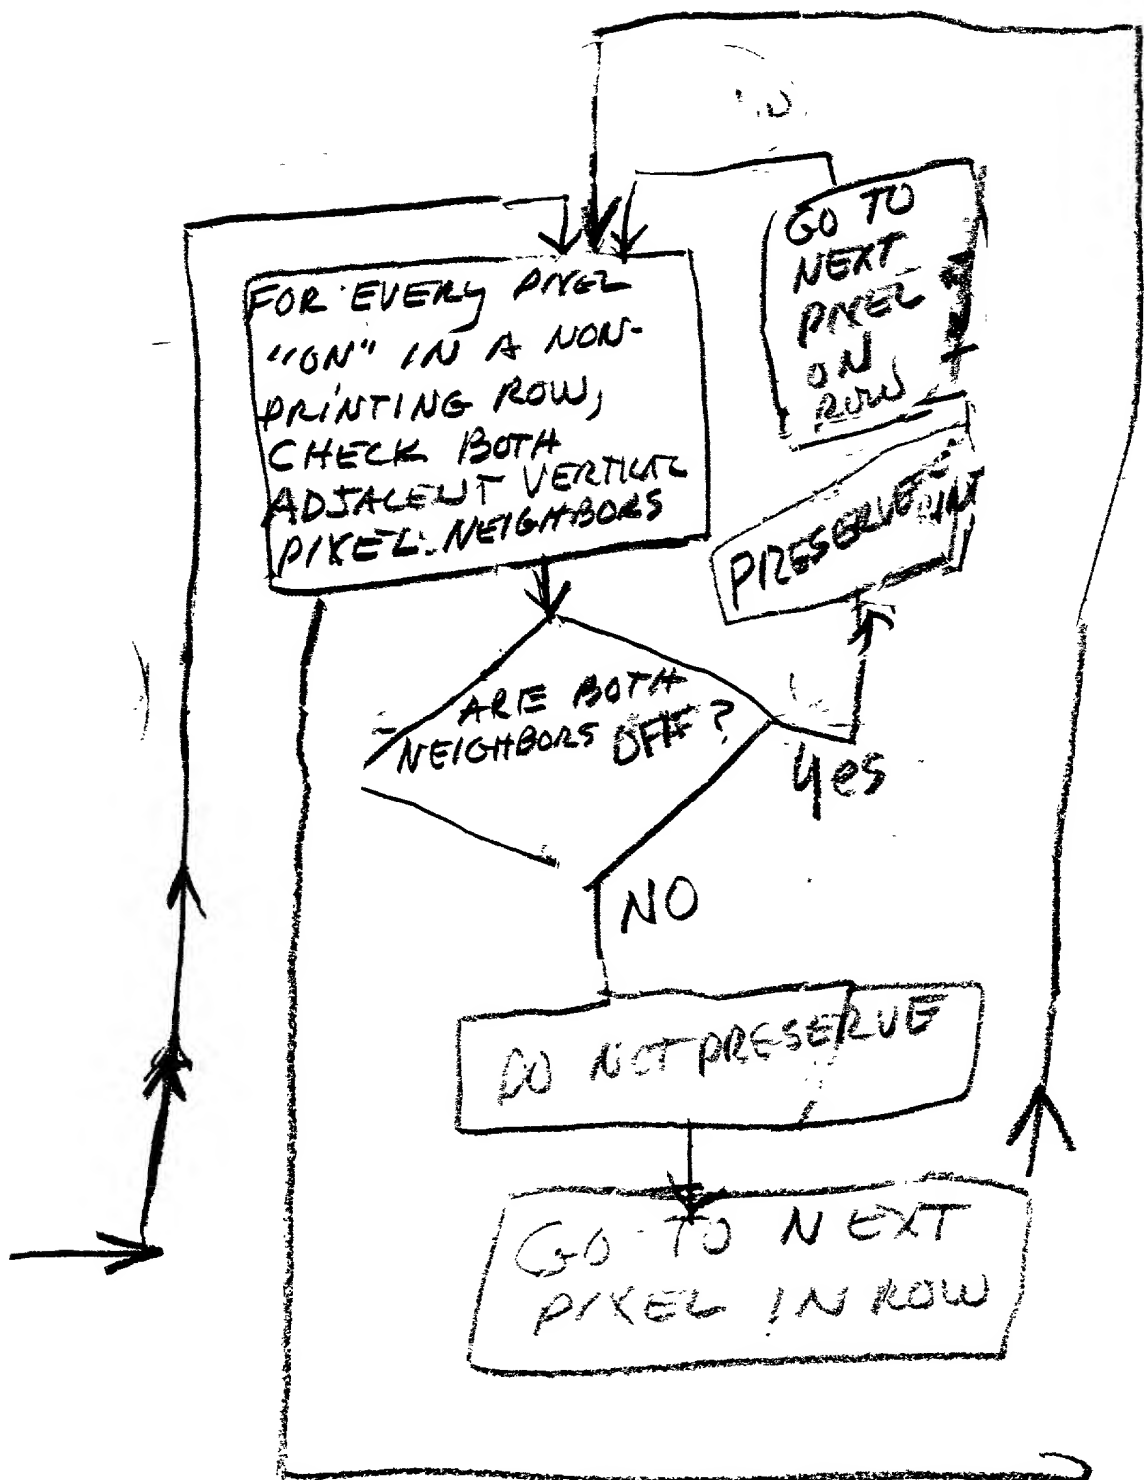 FOR EVERY PIXEL
"ON" IN A NON-
PRINTING ROW,
CHECK BOTH
ADJACENT VERTICAL
PIXEL NEIGHBORS
GO TO
NEXT
PIXEL
ON
ROW
PRESERVE
ARE BOTH
NEIGHBORS OFF?
Yes
NO
DO NOT PRESERVE
GO TO NEXT
PIXEL IN ROW